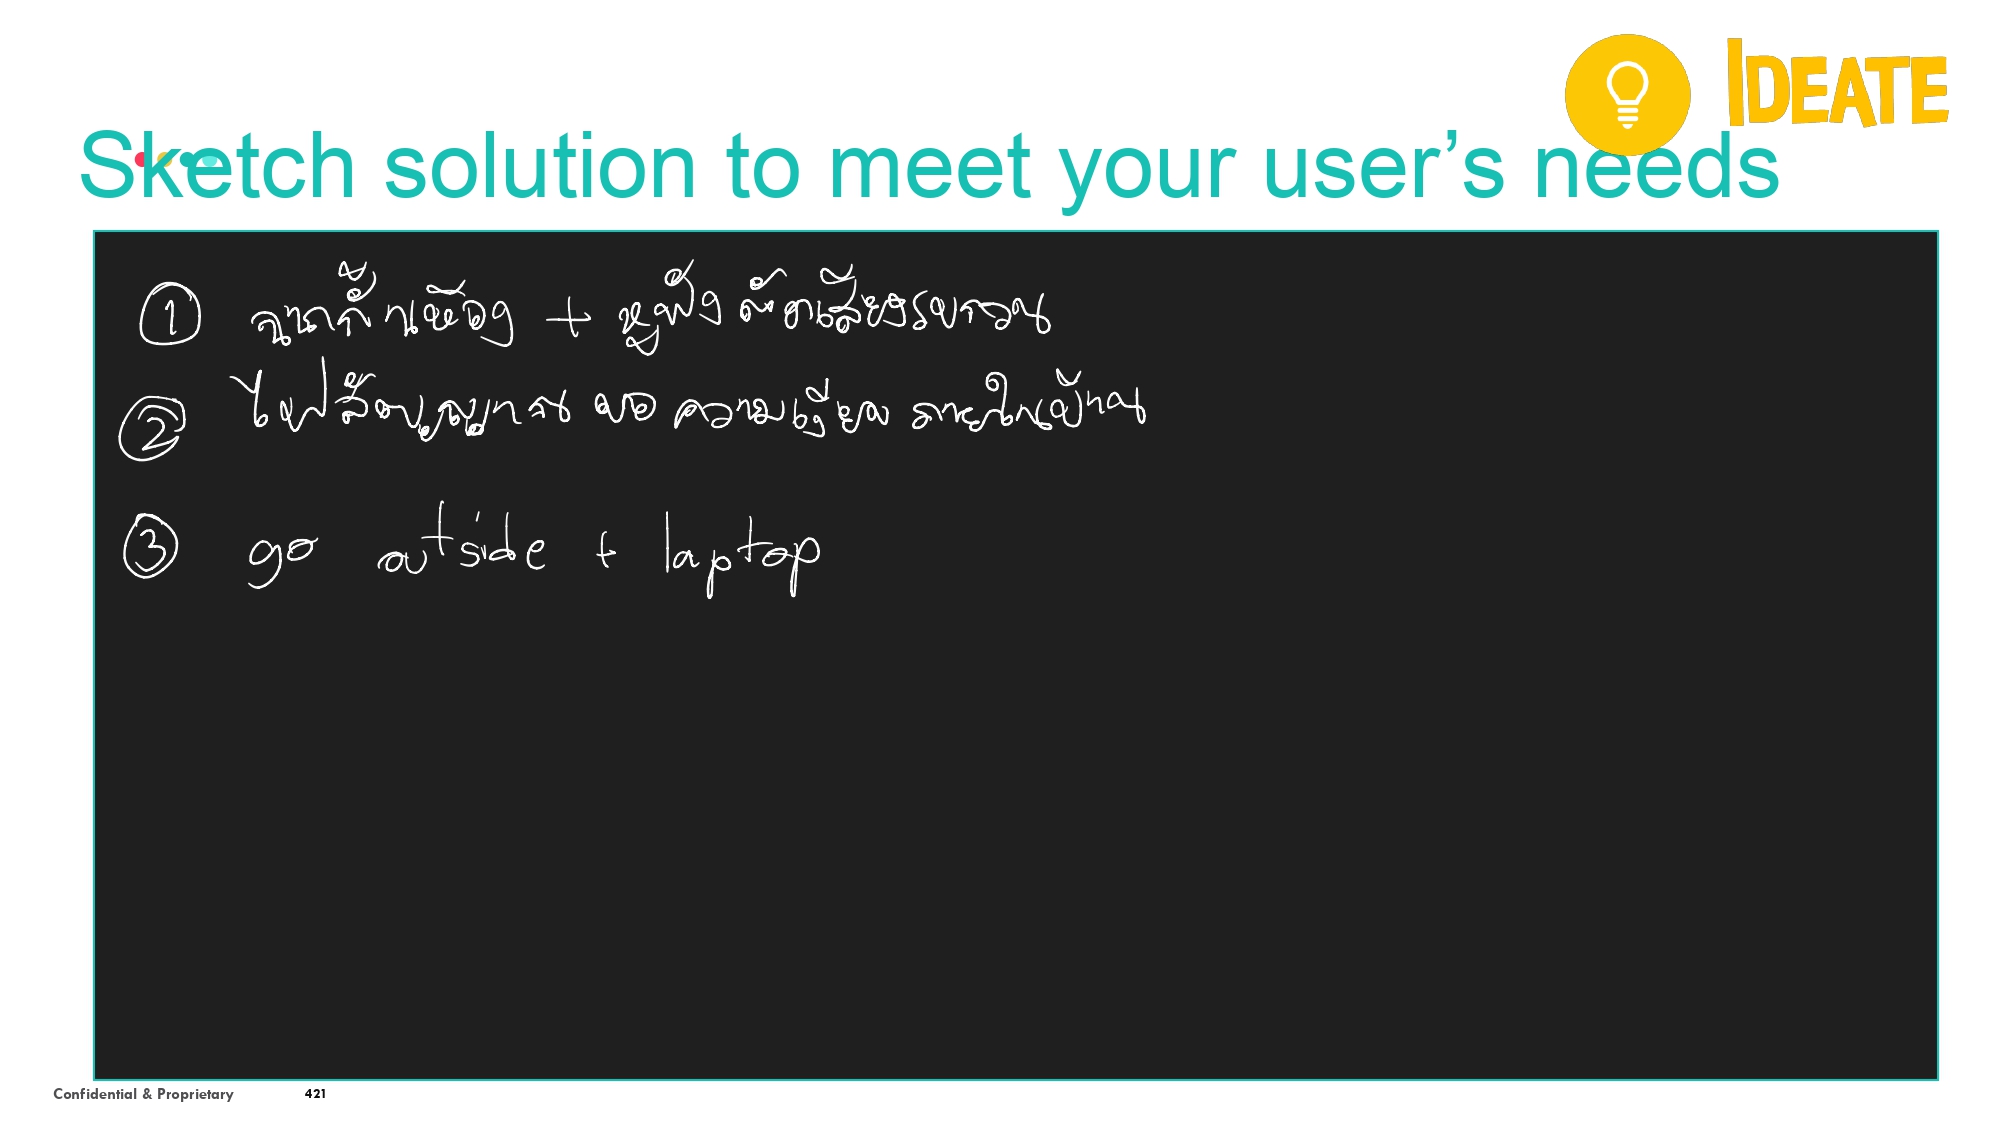 IDEATE
Sketch solution to meet your user’s needs
① ฉากกั้นห้อง + หูฟังตัดเสียงรบกวน
② ไฟสัญญาณ ขอ ความเงียบ ภายในบ้าน
③ go outside + laptop
Confidential & Proprietary 421